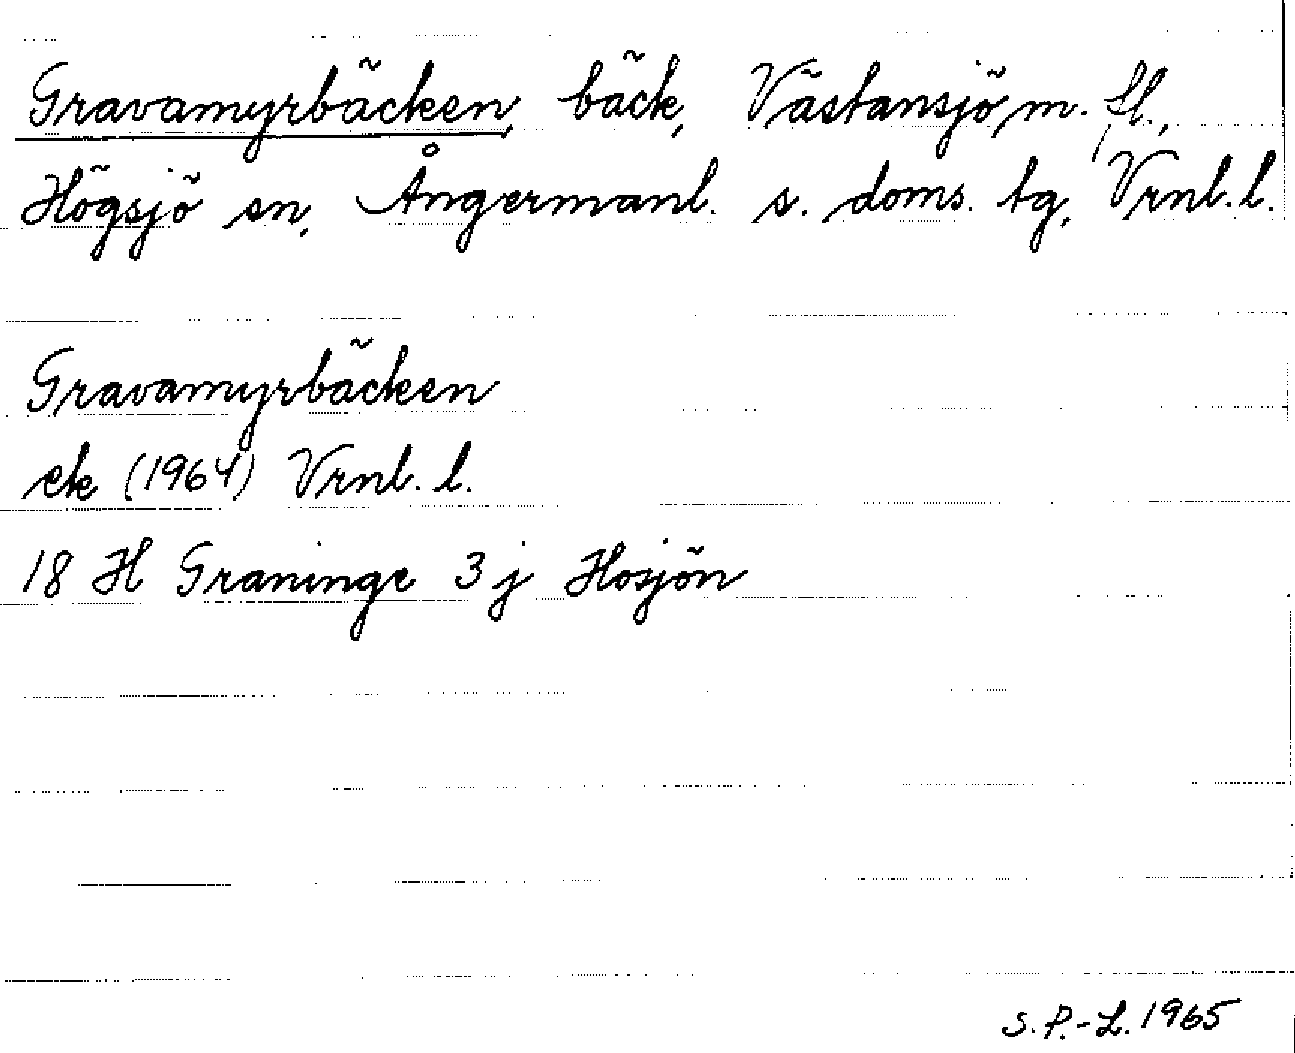 Gravamyrbäcken, bäck, Västansjö m. fl.,
Högsjö sn, Ångermanl. s. doms. tg, Vrnl. l.
Gravamyrbäcken
ek (1964) Vrnl. l.
18 H Graninge 3 j Hosjön
S. P.-L. 1965